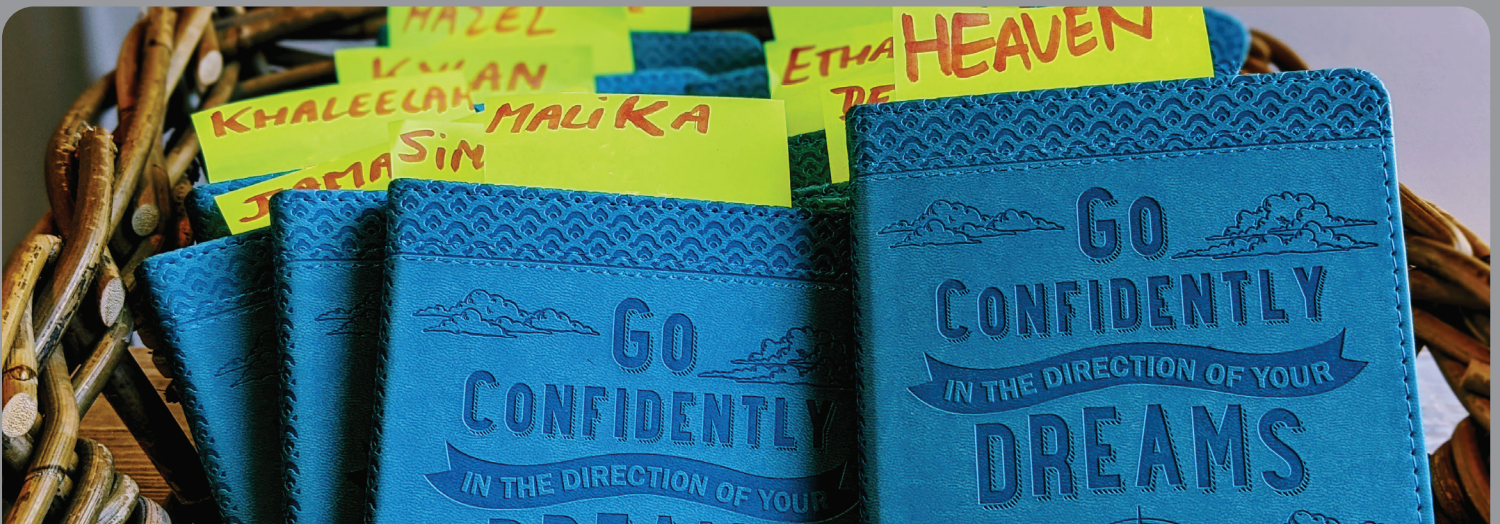 HAZEL
KYLAN
KHALEELAH
MALiKA
SiM
HEAVEN
GO
CONFIDENTLY
IN THE DIRECTION OF YOUR
GO
CONFIDENTLY
IN THE DIRECTION OF YOUR
DREAMS